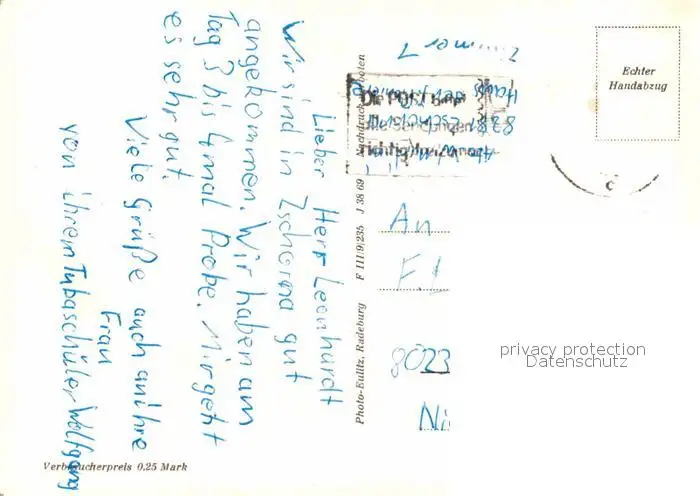 Lieber Herr Leonhardt
Wir sind in Zschorna gut
angekommen. Wir haben am
Tag 3 bis 4 mal Probe. Mir geht
es sehr gut!
Viele Grüße auch an ihre
Frau
von ihrem Tubaschüler Wolfgang
Verbraucherpreis 0,25 Mark
Photo-Eulitz, Radeburg F III/9/235 J 38 69 Nachdruck verboten
Zimmer 7
Haus der
Die Post
Echter
Handabzug
c
An
F.
8023
Ni
privacy protection
Datenschutz